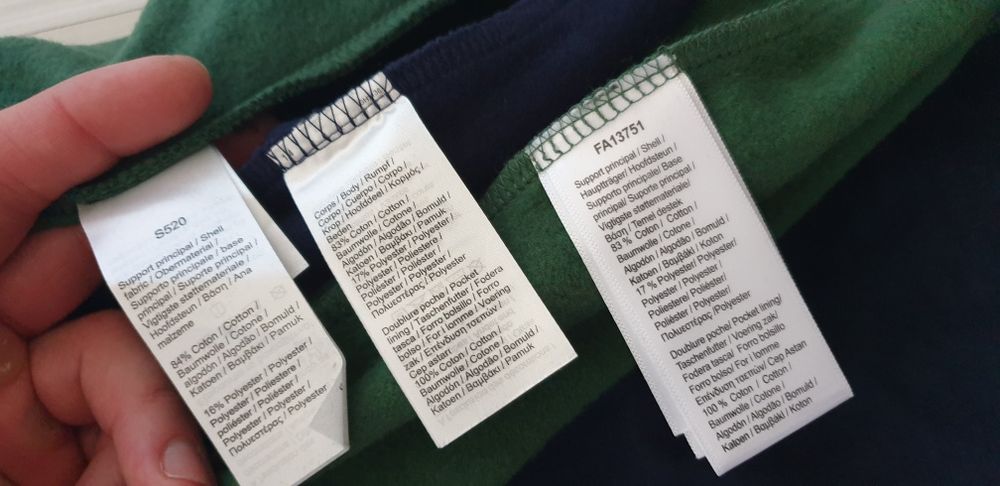 S520
Support principal / Shell
fabric / Obermaterial /
Supporto principale / base
principal / Suporte principal /
Vigtigste støttemateriale /
Hoofdsteun / Βάση / Ana
malzeme
84% Coton / Cotton /
Baumwolle / Cotone /
algodón / Algodão / Bomuld /
Katoen / Βαμβάκι / Pamuk
16% Polyester / Polyester /
Polyester / Poliestere /
poliéster / Poliéster /
Polyester / Polyester /
Πολυεστέρας / Polyester
Corps / Body / Rumpf /
Corpo / Cuerpo / Corpo /
Krop / Hoofddeel / Κορμός /
Beden
83% Coton / Cotton /
Baumwolle / Cotone /
Algodón / Algodão / Bomuld /
Katoen / Βαμβάκι / Pamuk
17% Polyester / Polyester /
Polyester / Poliestere /
Poliéster / Poliéster /
Polyester / Polyester /
Πολυεστέρας / Polyester
Doublure poche / Pocket
lining / Taschenfutter / Fodera
tasca / Forro bolsillo / Forro
bolso / For i lomme / Voering
zak / Επένδυση τσεπών /
Cep astarı
100% Coton / Cotton /
Baumwolle / Cotone /
Algodón / Algodão / Bomuld /
Katoen / Βαμβάκι / Pamuk
FA13751
Support principal / Shell /
Hauptträger/ Hoofdsteun /
Supporto principale/ Base
principal/ Suporte principal /
Vigtigste støttemateriale/
Βάση / Temel destek
83 % Coton / Cotton /
Baumwolle / Cotone /
Algodón / Algodão / Bomuld /
Katoen / Βαμβάκι / Koton
17 % Polyester/ Polyester/
Polyester / Polyester/
Poliestere/ Poliéster/
Poliéster / Polyester/
Πολυεστέρας /Polyester
Doublure poche/ Pocket lining/
Taschenfutter / Voering zak/
Fodera tasca/ Forro bolsillo
Forro bolso/ For i lomme
Επένδυση τσεπών/ Cep Astarı
100 % Coton / Cotton /
Baumwolle / Cotone /
Algodón / Algodão / Bomuld /
Katoen / Βαμβάκι / Koton